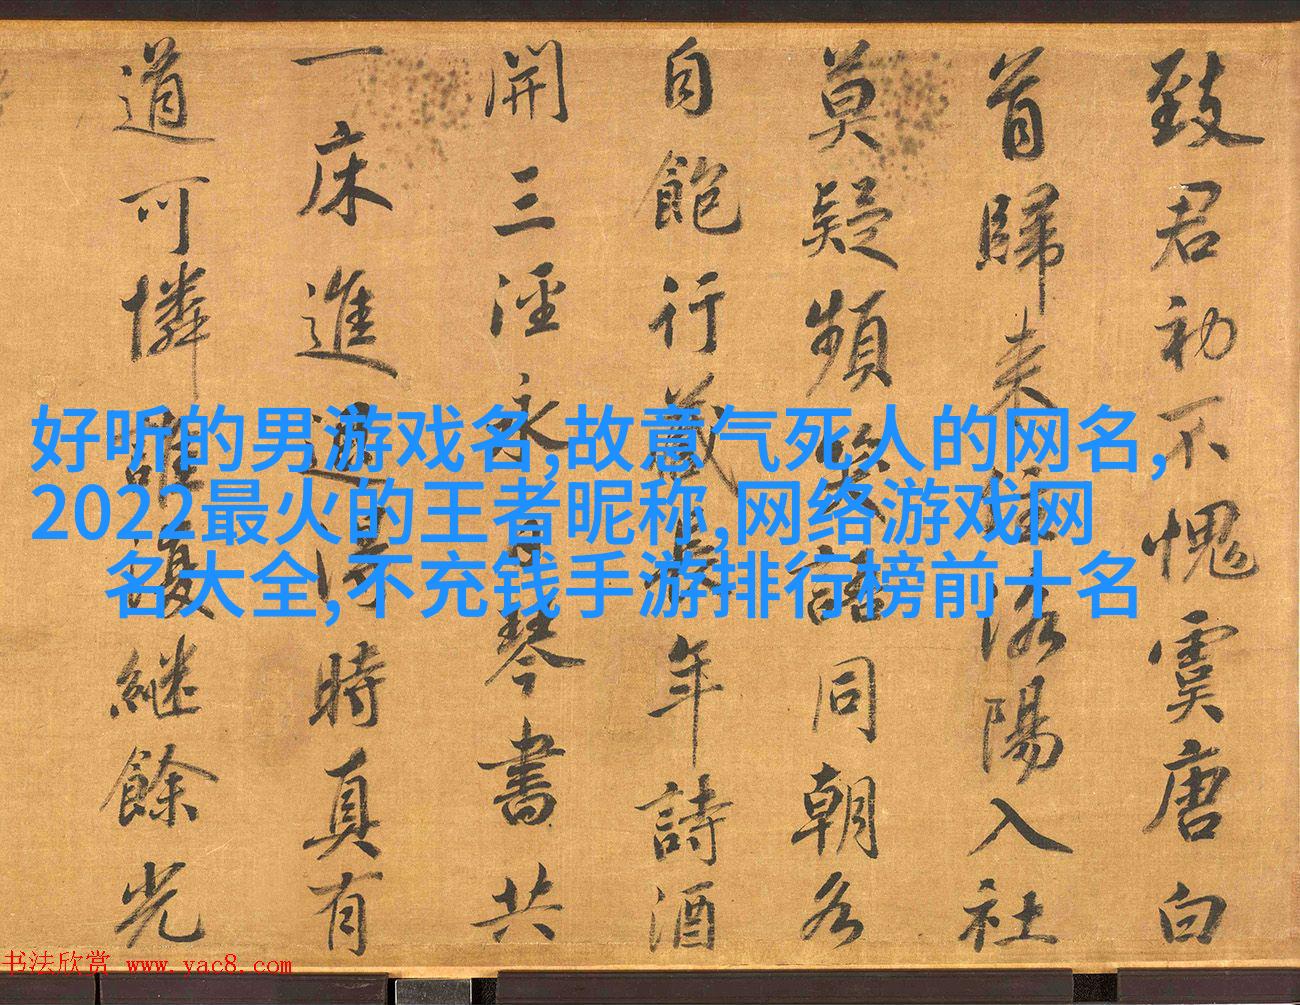 致君初不愧虞唐白
首歸来住洛陽入社
莫疑頻笑語同朝各
自飽行藏年詩酒
開三涇永日琴書共
一床進得時真有
道可憐誰復繼餘光
好听的男游戏名,故意气死人的网名,
2022最火的王者昵称,网络游戏网
名大全,不充钱手游排行榜前十名
书法欣赏 www.yac8.com